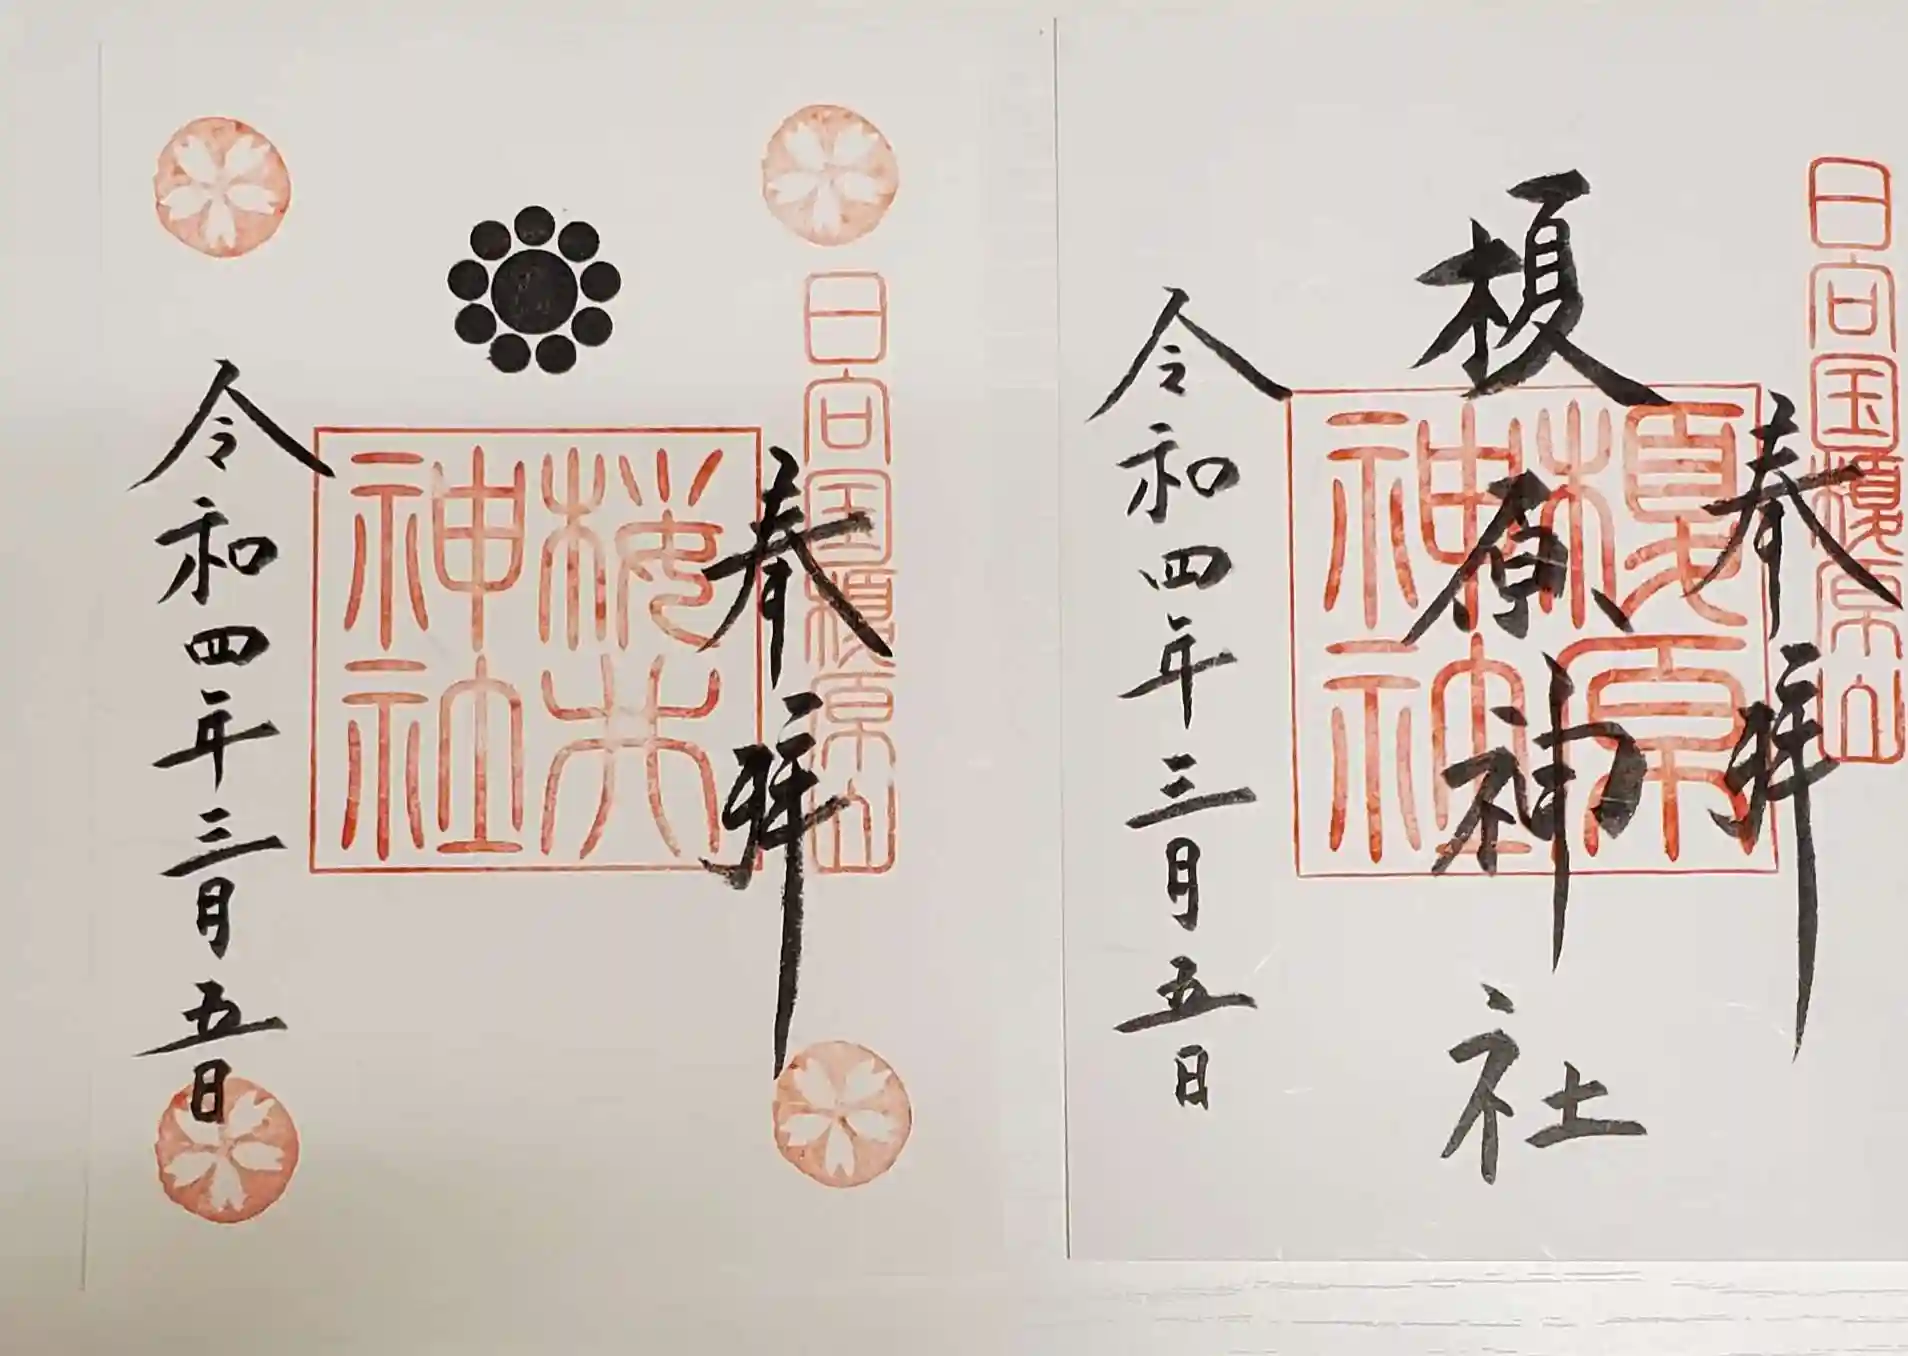 日向国榎原山
奉拝
榎原神社
榎原神社
令和四年三月五日
日向国榎原山
奉拝
桜井神社
令和四年三月五日